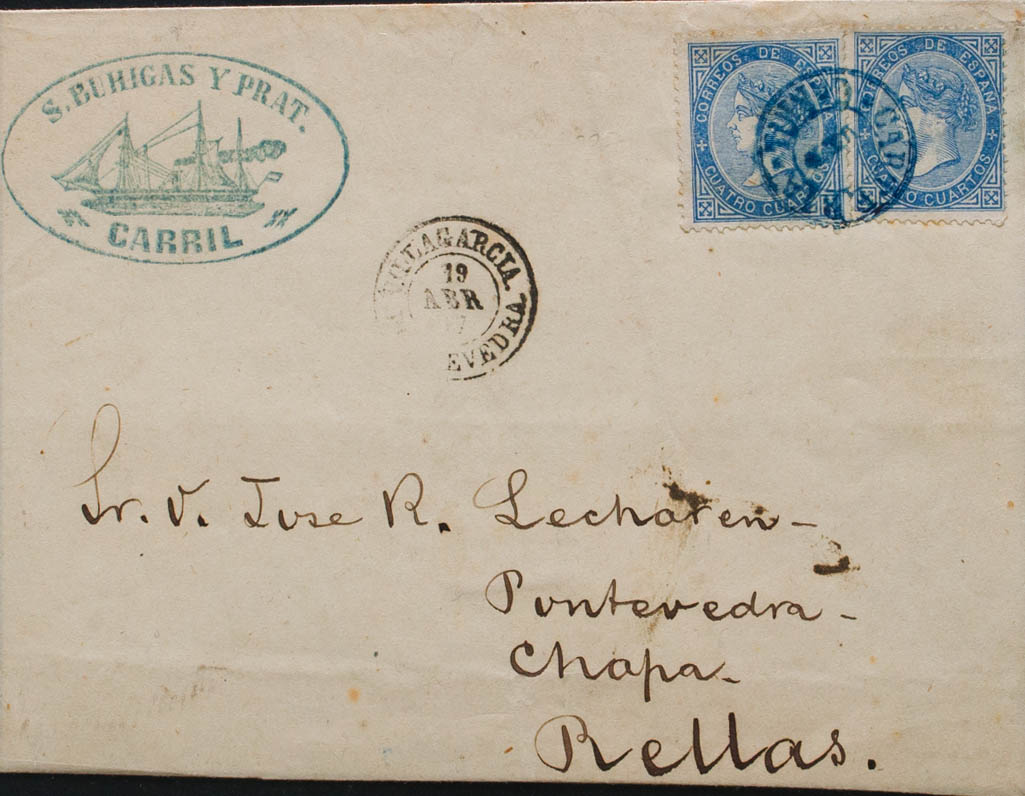 S. BUHIGAS Y PRAT.
CARRIL
CORREOS DE ESP
CUATRO CUARTOS
CORREOS DE ESPAÑA
CUATRO CUARTOS
VILLAGARCIA.
19
ABR
EVEDRA.
Sr. D. Jose R. Lecharen-
Pontevedra-
Chapa-
Rellas.